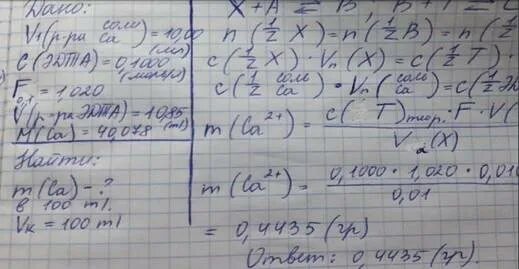 Дано:
V₁(р-ра соль Ca) = 10,00 (мл)
C(ЭДТА) = 0,1000
F = 1,020
V(р-ра ЭДТА) = 10,85 (ml)
M(Ca) = 40,078
Найти:
m(Ca) - ?
в 100 ml.
Vк = 100 ml
X + A ⇄ B
n(½ X) = n(½ B) = n(½
c(½ X) · Vп(X) = c(½ T) ·
c(½ соль Ca) · Vп(соль Ca) = c(½
m(Ca²⁺) = c( T)теор. · F · V(
V (X)
m(Ca²⁺) = 0,1000 · 1,020 · 0,010
0,01
= 0,4435 (гр)
Ответ: 0,4435 (гр).